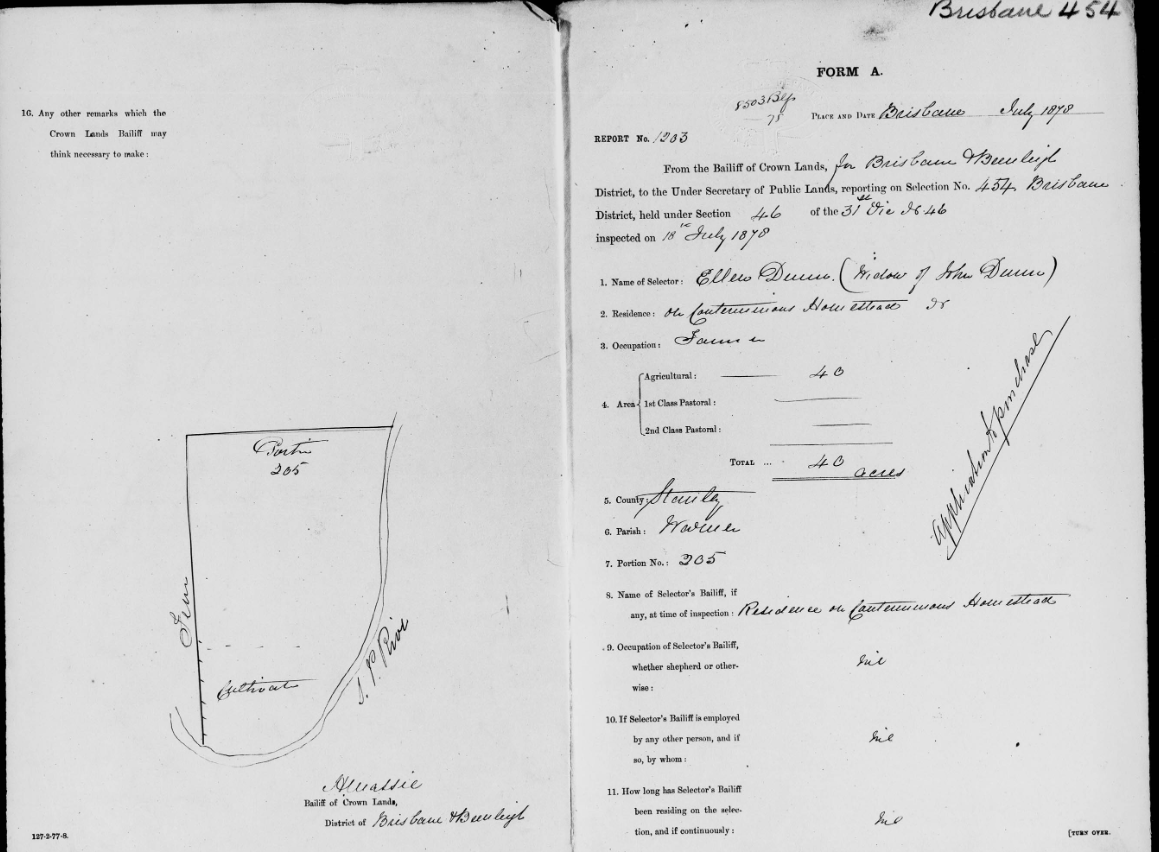 16. Any other remarks which the
Crown Lands Bailiff may
think necessary to make :
Portion
205
Cultivat
S. P. River
Bailiff of Crown Lands,
District of Brisbane & Beenleigh
127-2-77-8.
Brisbane 454
FORM A.
PLACE AND DATE Brisbane July 1878
REPORT No. 1203
From the Bailiff of Crown Lands, for Brisbane & Beenleigh
District, to the Under Secretary of Public Lands, reporting on Selection No. 454 Brisbane
District, held under Section 46 of the 31st Vic No 46
inspected on 18th July 1878
1. Name of Selector : Ellen Dunn. (Widow of John Dunn)
2. Residence : on Conterminous Homestead
3. Occupation : Farmer
4. Area
Agricultural : 40
1st Class Pastoral :
2nd Class Pastoral :
TOTAL ... 40 acres
5. County : Stanley
6. Parish : Warner
7. Portion No. : 205
Application to purchase
8. Name of Selector's Bailiff, if
any, at time of inspection : Residence on Conterminous Homestead
9. Occupation of Selector's Bailiff,
whether shepherd or other-
wise :
nil
10. If Selector's Bailiff is employed
by any other person, and if
so, by whom :
nil
11. How long has Selector's Bailiff
been residing on the selec-
tion, and if continuously :
nil
[TURN OVER.